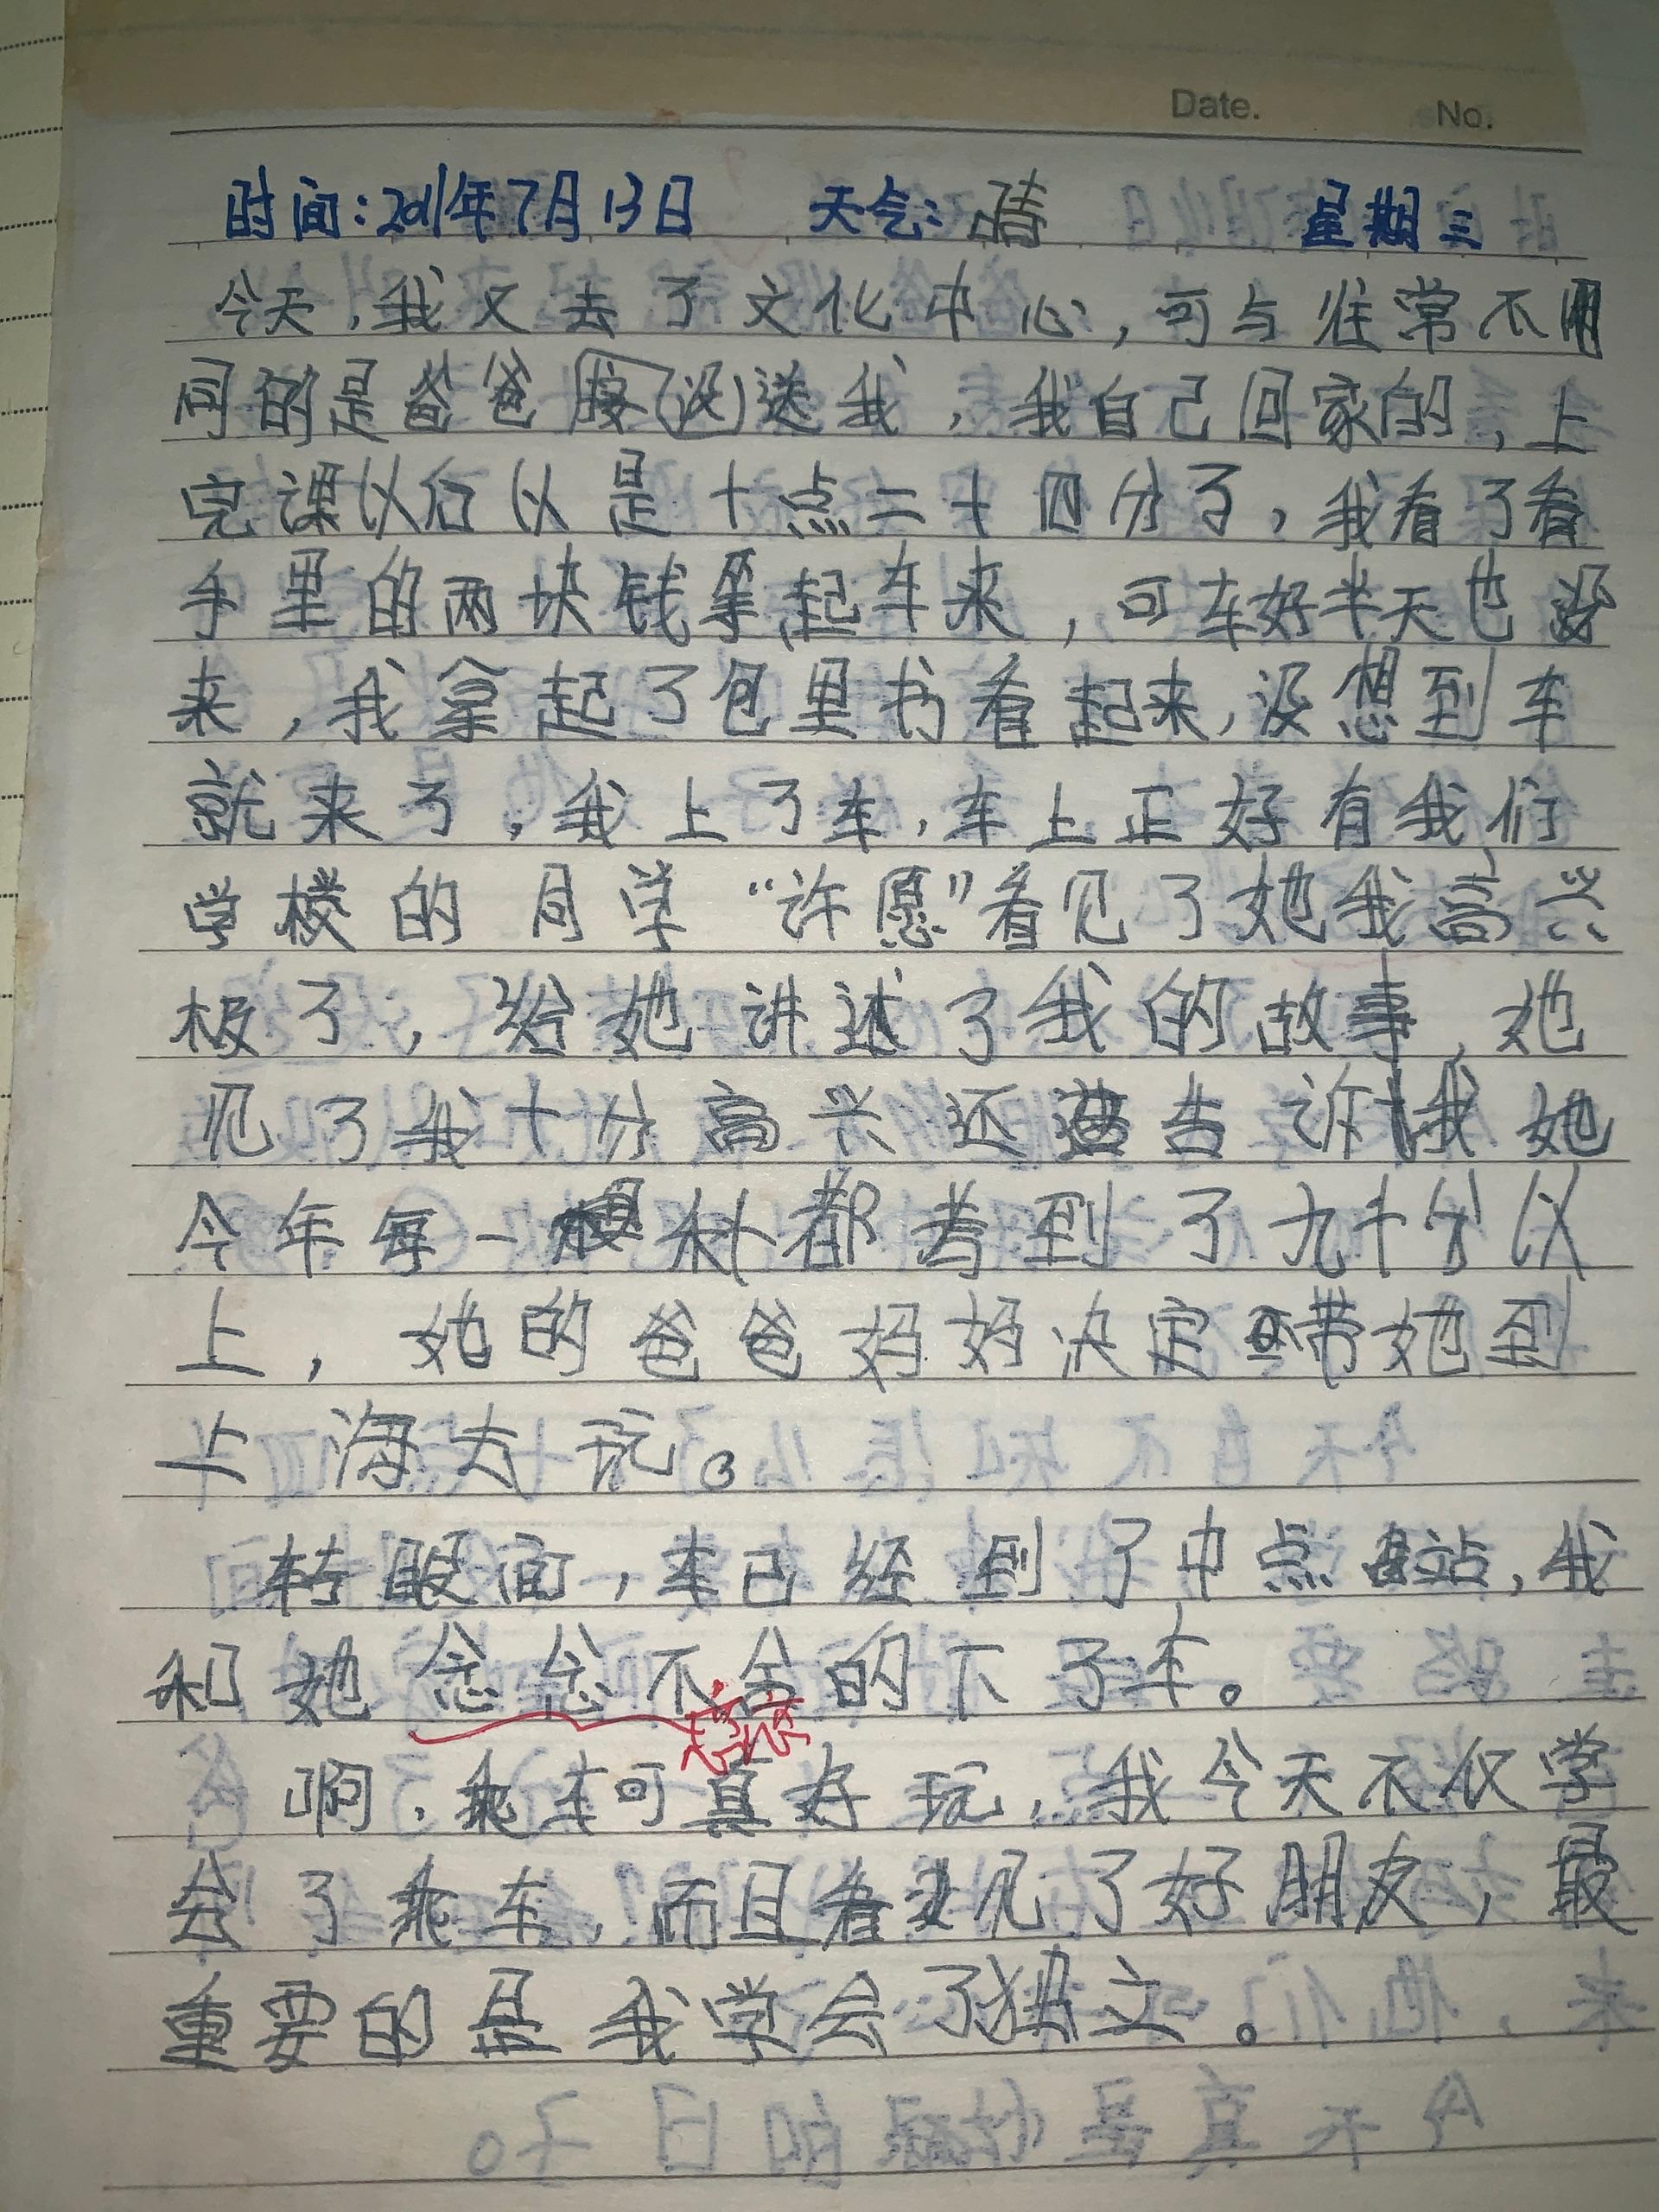 Date. No.
时间:2011年7月13日 天气:晴 星期三
今天,我又去了文化中心,可与往常不
同的是爸爸(没)送我,我自己回家的,上
完课以后以是十点二十四分了,我看了看
手里的两块钱等起车来,可车好半天也没
来,我拿起了包里书看起来,没想到车
就来了,我上了车,车上正好有我们
学校的同学“许愿”看见了她我高兴
极了,给她讲述了我的故事,她
见了我十分高兴还告诉我她
今年每一科都考到了九十分以
上,她的爸爸妈妈决定带她到
上海去玩。
转眼间,车已经到了中点站,我
和她念念不舍的下了车。
恋恋
啊,乘车可真好玩,我今天不仅学
会了乘车,而且看见了好朋友,最
重要的是我学会了独立。